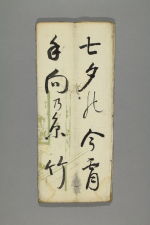 七夕の今宵
手向乃糸竹